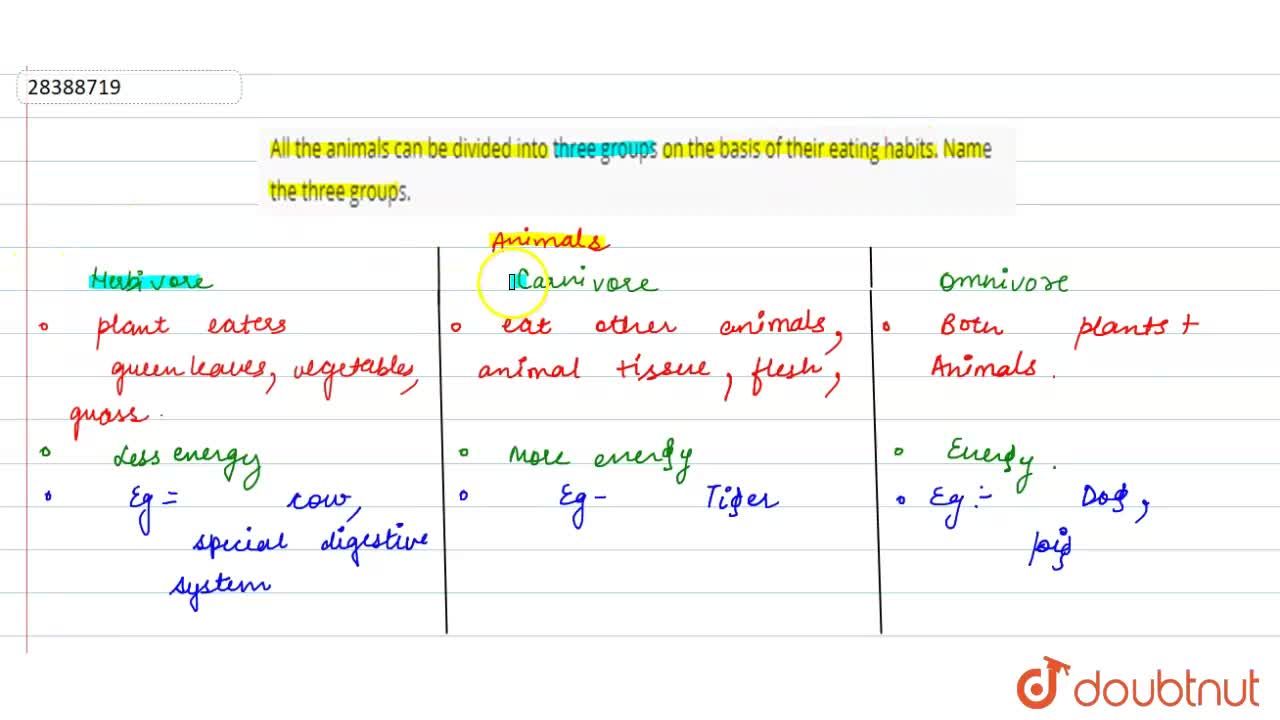 28388719
All the animals can be divided into three groups on the basis of their eating habits. Name
the three groups.
Animals
Herbivore
• plant eaters
green leaves, vegetables,
grass.
• Less energy
• Eg = cow,
special digestive
system
Carnivore
• eat other animals,
animal tissue, flesh,
• More energy
• Eg - Tiger
Omnivore
• Both plants +
Animals.
• Energy.
• Eg :- Dog,
pig
doubtnut